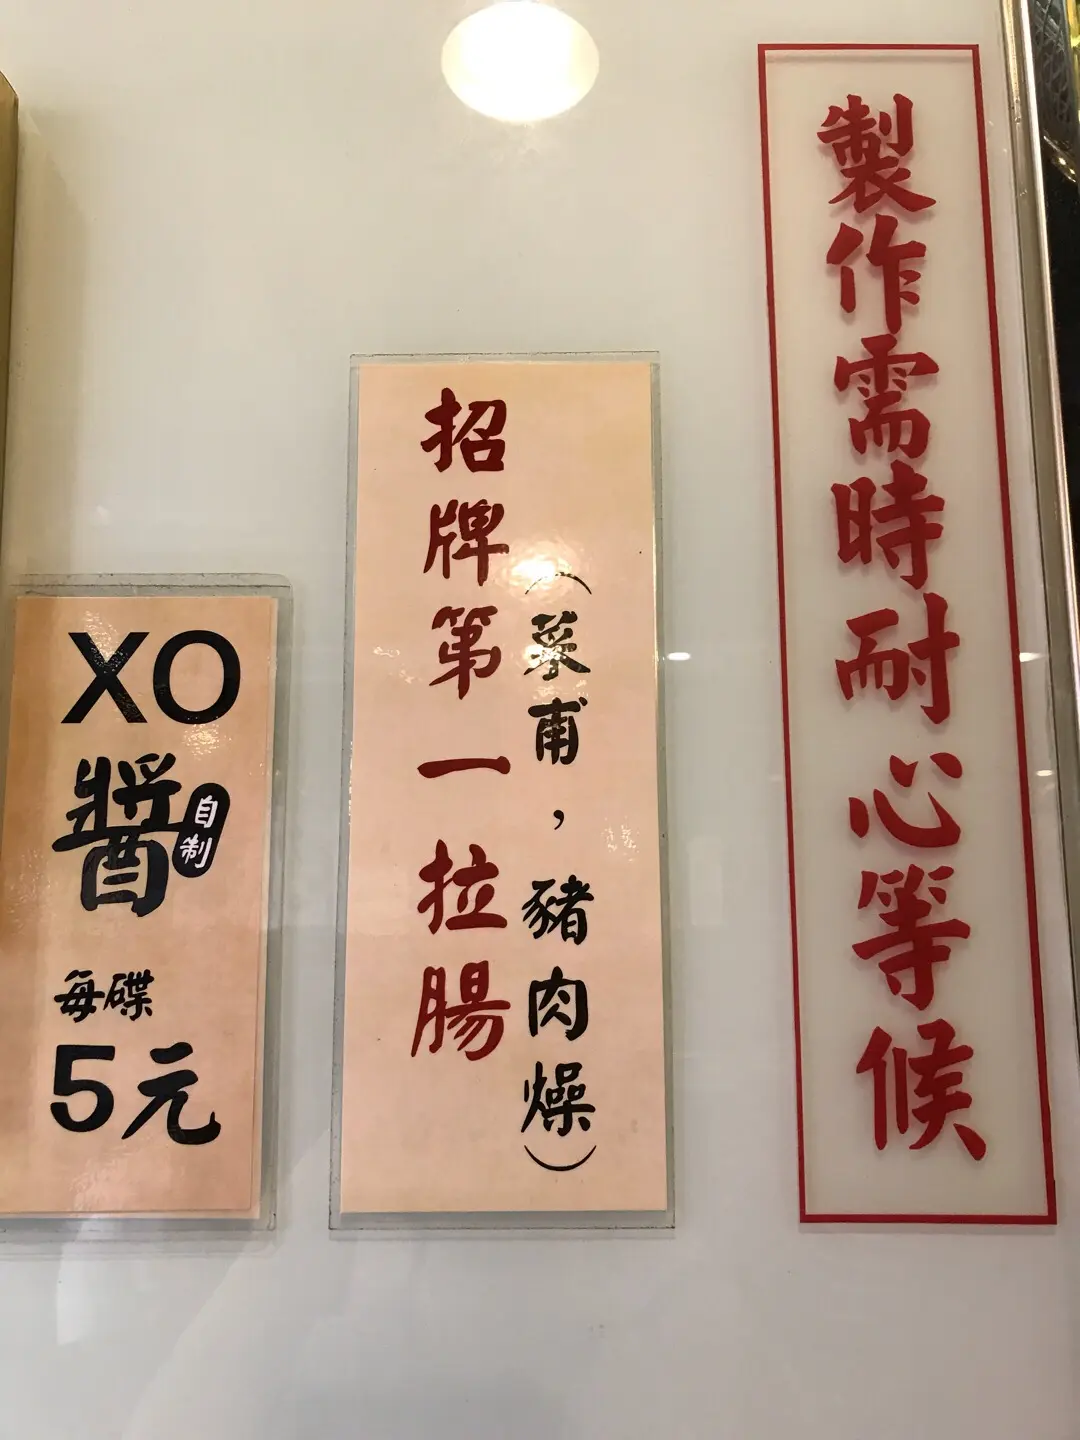 製作需時耐心等候
招牌第一拉腸
（菜甫，豬肉燥）
XO
醬
自制
每碟
5元